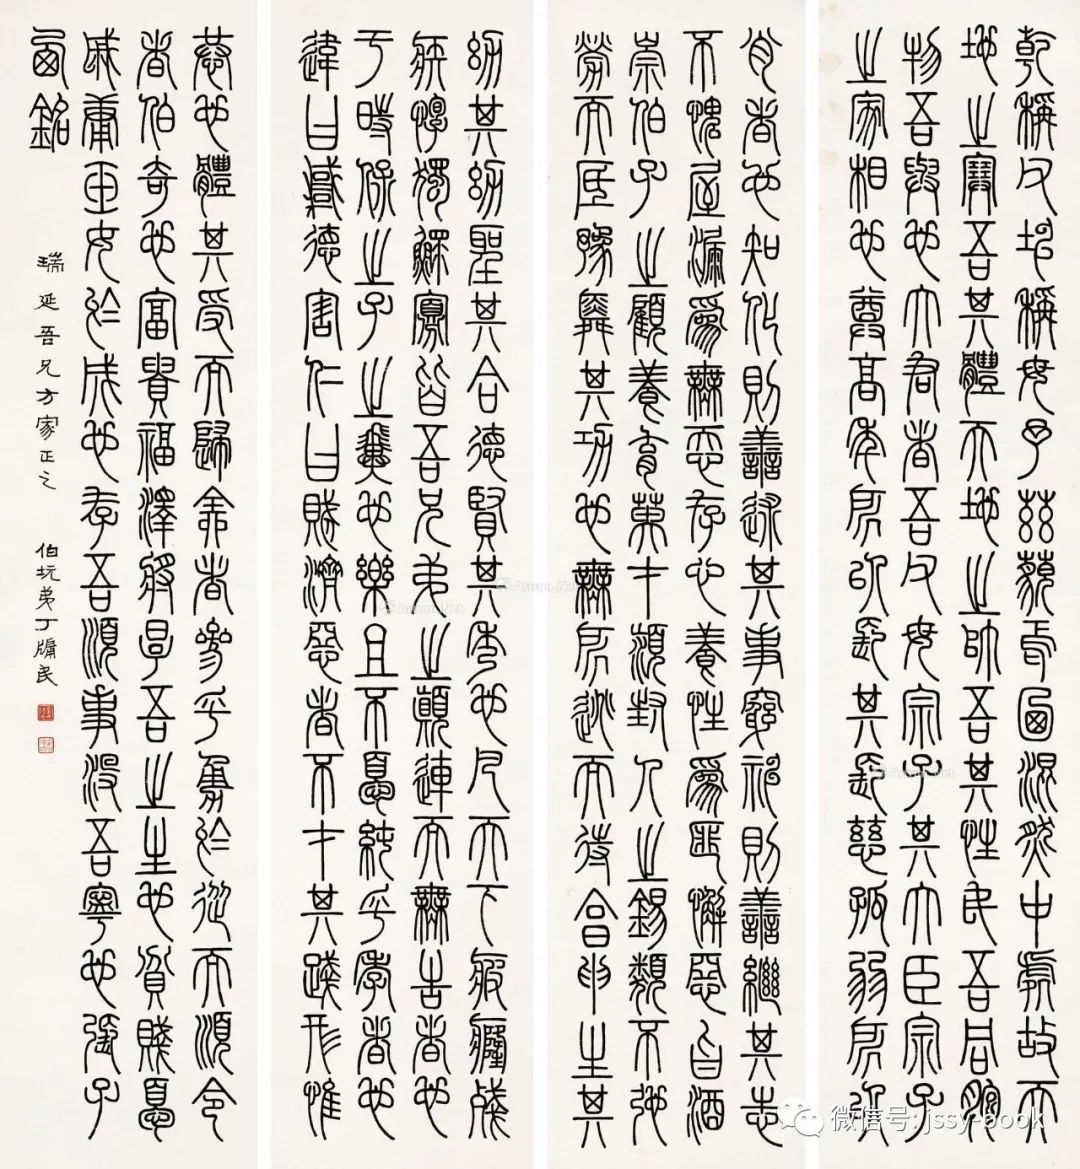 乾稱父坤稱母予茲藐焉迺混然中處故天
地之塞吾其體天地之帥吾其性民吾同胞
物吾與也大君者吾父母宗子其大臣宗子
之家相也尊高年所以長其長慈孤弱所以
幼其幼聖其合德賢其秀也凡天下疲癃殘
疾惸獨鰥寡皆吾兄弟之顛連而無告者也
于時保之子之翼也樂且不憂純乎孝者也
違曰悖德害仁曰賊濟惡者不才其踐形惟
肖者也知化則善述其事窮神則善繼其志
不愧屋漏為無忝存心養性為匪懈惡旨酒
崇伯子之顧養育英才潁封人之錫類不弛
勞而厎豫舜其功也無所逃而待烹申生其
恭也體其受而歸全者參乎勇於從而順令
者伯奇也富貴福澤將厚吾之生也貧賤憂
戚庸玉女於成也存吾順事沒吾寧也張子
西銘
瑞延吾兄方家正之 伯坑弟丁牖民
Artron.Net
微信号: jssy-book